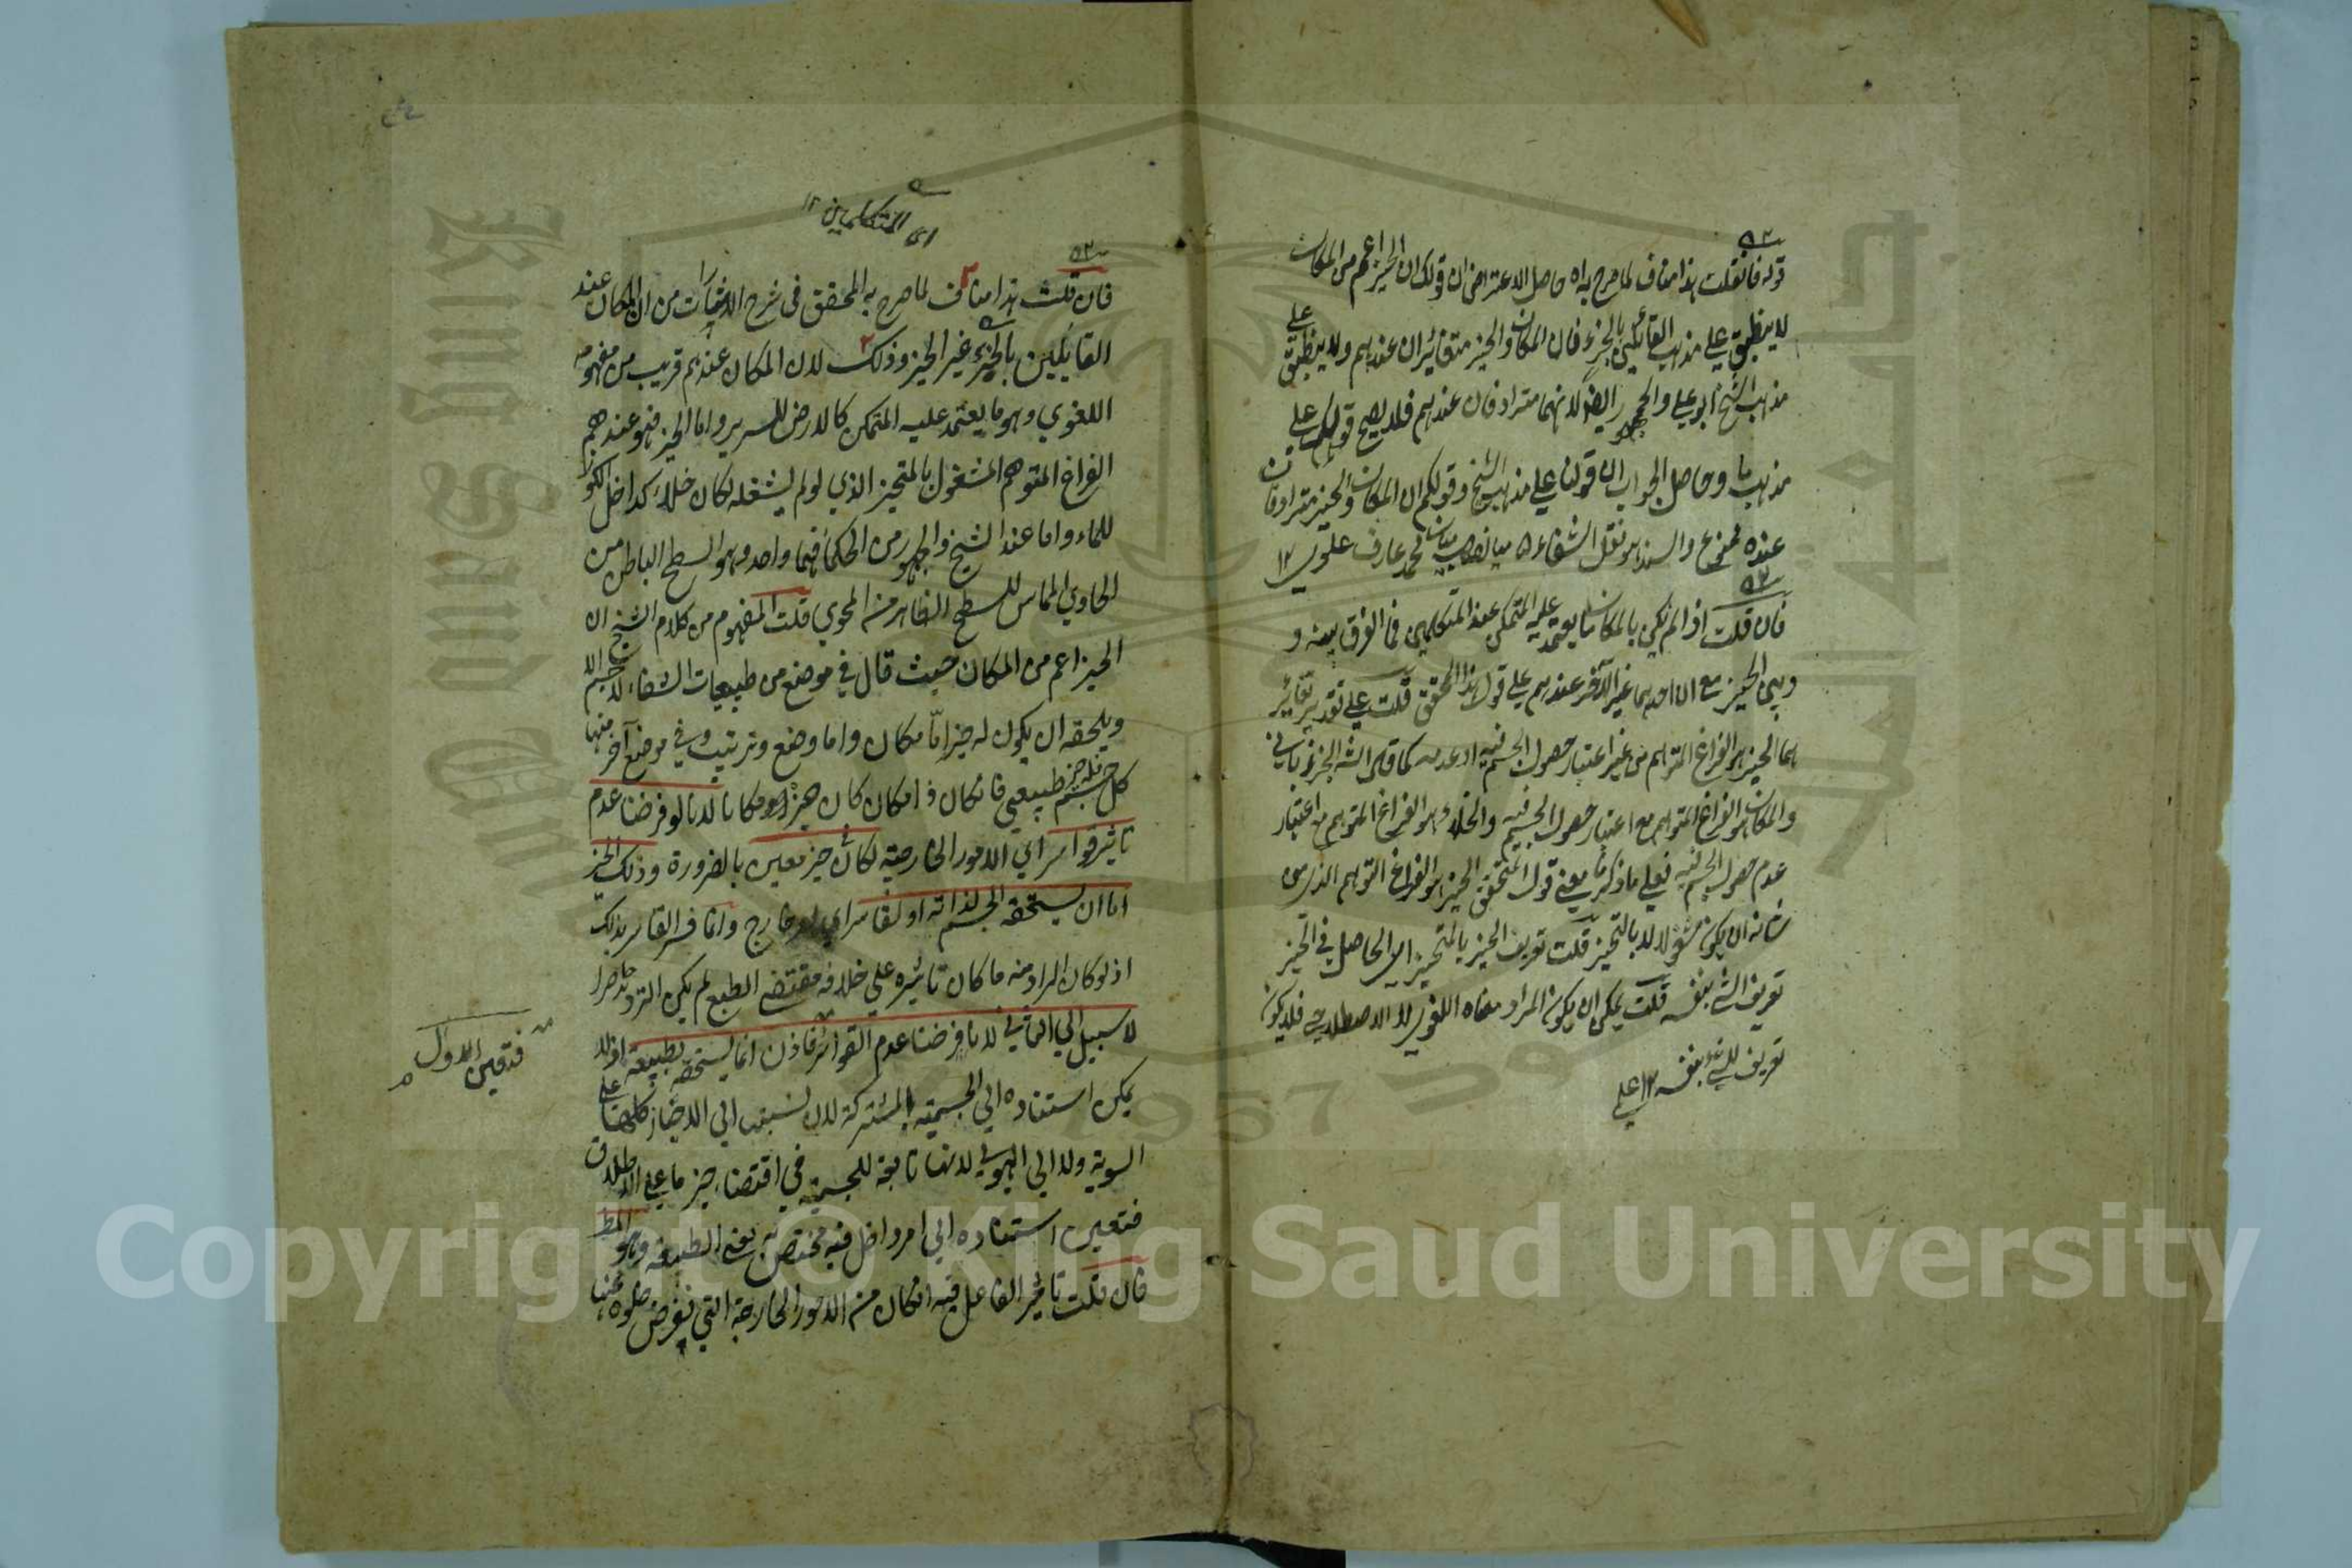 ٥٢
قوله فان قلت هذا مناف لما صرح به اه حاصل الاعتراض ان قولك ان الحيز اعم من المكان
لا ينطبق علي مذهب القائلين بالجزء فان المكان والحيز متغائران عندهم ولا ينطبق علي
مذهب الشيخ ابو علي والجمهور ايضا لانهما مترادفان عندهم فلا يصح قولكم علي
مذهب ما وحاصل الجواب ان قولنا علي مذهب الشيخ وقولكم ان المكان والحيز مترادفان
عنده ممنوع والسند هو نقل الشفاء محمد عارف علوي ١٢
٥٢
فان قلت اذا لم يكن بالمكان ما يعتمد عليه المتمكن عند المتكلمين فما الفرق بينه و
وبين الحيز مع ان احدهما غير الآخر عندهم علي قول هذا المحقق قلت علي تقدير تغائر
هما الحيز هو الفراغ المتوهم من غير اعتبار حصول الجسم فيه او عدمه كما قال
والمكان هو الفراغ المتوهم مع اعتبار حصول الجسم فيه والخلاء هو الفراغ المتوهم مع اعتبار
عدم حصول الجسم فيه فعلي ما ذكرنا معني قول المحقق الحيز هو الفراغ المتوهم الذي من
شانه ان يكون مشغولا لا بالتحيز قلت تعريف الحيز بالمتحيز اي الحاصل في الحيز
تعريف الشئ بنفسه قلت يمكن ان يكون المراد معناه اللغوي لا الاصطلاحي فلا يكون
تعريف للشئ بنفسه ١٢ علي
اى المتكلمين ١٢
٥٢
فان قلت هذا مناف لما صرح به المحقق فى شرح الاشارات من ان المكان عند
القايلين بالجزء غير الحيز وذلك لان المكان عندهم قريب من مفهومه
اللغوي وهو ما يعتمد عليه المتمكن كالارض للسرير واما الحيز فهو عندهم
الفراغ المتوهم المشغول بالمتحيز الذي لو لم يشغله لكان خلاء كداخل الكوز
للماء واما عند الشيخ والجمهور من الحكماء فهما واحد وهو السطح الباطن من
الحاوي المماس للسطح الظاهر من المحوي قلت المفهوم من كلام الشيخ ان
الحيز اعم من المكان حيث قال في موضع من طبيعيات الشفاء لا جسم الا
ويلحقه ان يكون له حيز اما مكان واما وضع وترتيب وفي موضع آخر منها
كل جسم فله حيز طبيعي فانكان ذا مكان كان حيزه مكانا لانا لو فرضنا عدم
تاثير قواسر اي الامور الخارجية لكان في حيز معين بالضرورة وذلك الحيز
اما ان يستحقه الجسم لذاته او لقاسر اي لامر خارج وانما فسر القاسر بذلك
اذ لو كان المراد منه ما كان تاثيره علي خلاف مقتضى الطبع لم يكن الترديد حاصرا
لا سبيل الي الثاني لانا فرضنا عدم القواسر فاذن انما يستحقه بطبيعته اذ لا
يمكن استناده الي الجسمية المشتركة لان نسبتها الي الاحياز كلها علي
السوية ولا الي الهيولي لانها تابعة للجسمية في اقتضاء حيز ما علي الاطلاق
فتعين استناده الي امر داخل فيه مختص به يعنى الطبيعة وهو المط
فان قلت تاثير الفاعل فيه ان كان من الامور الخارجة التي نفرض خلوه عنها
فتعين الاول